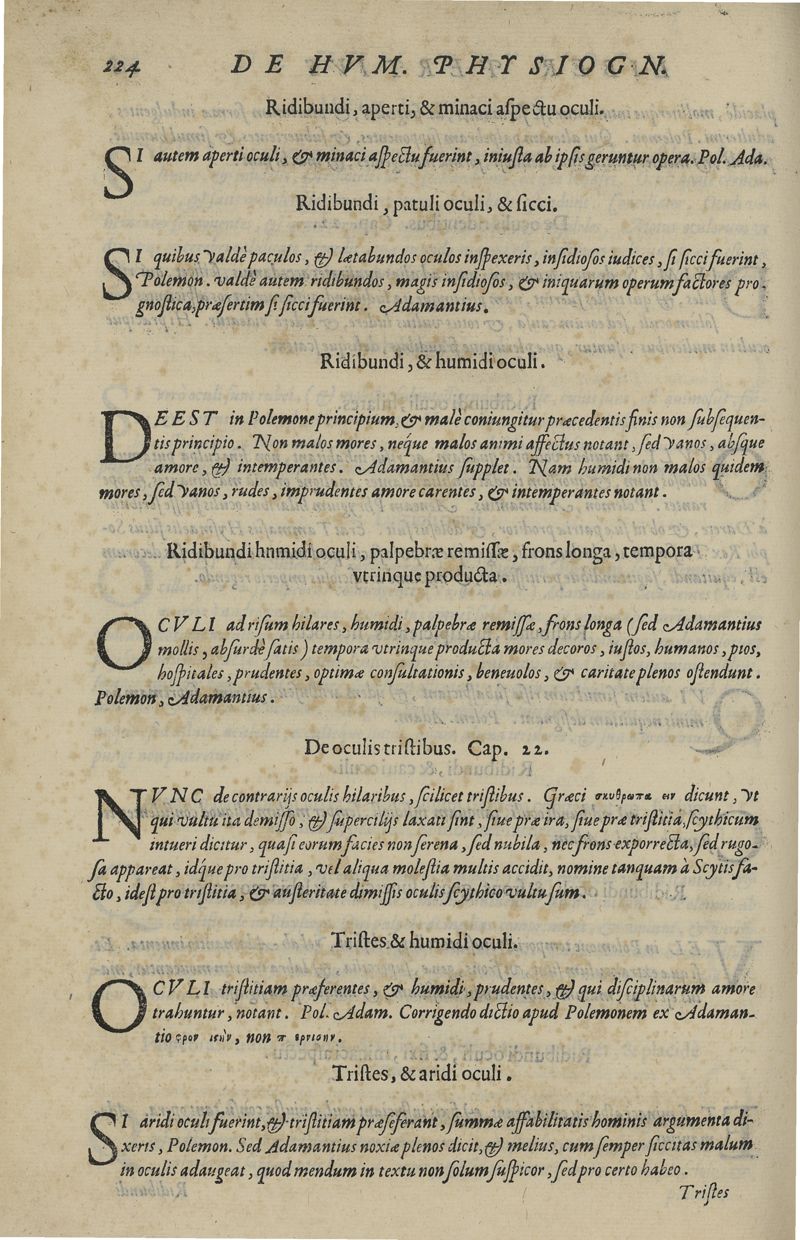 224 DE HVM. PHYSIOGN.
Ridibundi, aperti, & minaci aſpectu oculi.
SI autem aperti oculi, & minaci aſpectu fuerint, iniuſta ab ipſis geruntur opera. Pol. Ada.
Ridibundi, patuli oculi, & ſicci.
SI quibus valdè paculos, & lætabundos oculos inſpexeris, inſidioſos iudices, ſi ſicci fuerint,
Polemon. valdè autem ridibundos, magis inſidioſos, & iniquarum operum factores pro-
gnoſtica, præſertim ſi ſicci fuerint. Adamantius.
Ridibundi, & humidi oculi.
DEEST in Polemone principium, & malè coniungitur præcedentis finis non ſubſequen-
tis principio. Non malos mores, neque malos animi affectus notant, ſed vanos, abſque
amore, & intemperantes. Adamantius ſupplet. Nam humidi non malos quidem
mores, ſed vanos, rudes, imprudentes amore carentes, & intemperantes notant.
Ridibundi hnmidi oculi, palpebræ remiſſæ, frons longa, tempora
vtrinque producta.
OCVLI ad riſum hilares, humidi, palpebræ remiſſæ, frons longa (ſed Adamantius
mollis, abſurdè ſatis) tempora vtrinque producta mores decoros, iuſtos, humanos, pıos,
hoſpitales, prudentes, optimæ conſultationis, beneuolos, & caritate plenos oſtendunt.
Polemon, Adamantius.
De oculis triſtibus. Cap. 22.
NVNC de contrarijs oculis hilaribus, ſcilicet triſtibus. Græci σκυθρωπα dicunt, vt
qui vultu ita demiſſo, & ſupercilijs laxati ſint, ſiue præ ira, ſiue præ triſtitia, ſcythicum
intueri dicitur, quaſi eorum facies non ſerena, ſed nubila, nec frons exporrecta, ſed rugo-
ſa appareat, idque pro triſtitia, vel aliqua moleſtia multis accidit, nomine tanquam à Scytis fa-
cto, ideſt pro triſtitia, & auſteritate dimiſſis oculis ſcythico vultu ſum.
Triſtes & humidi oculi.
OCVLI triſtitiam præferentes, & humidi, prudentes, & qui diſciplinarum amore
trahuntur, notant. Pol. Adam. Corrigendo dictio apud Polemonem ex Adaman-
tio, non
Triſtes, & aridi oculi.
SI aridi oculi fuerint, & triſtitiam præſeferant, ſummæ affabilitatis hominis argumenta di-
xeris, Polemon. Sed Adamantius noxiæ plenos dicit, & melius, cum ſemper ſiccitas malum
in oculis adaugeat, quod mendum in textu non ſolum ſuſpicor, ſed pro certo habeo.
Triſtes